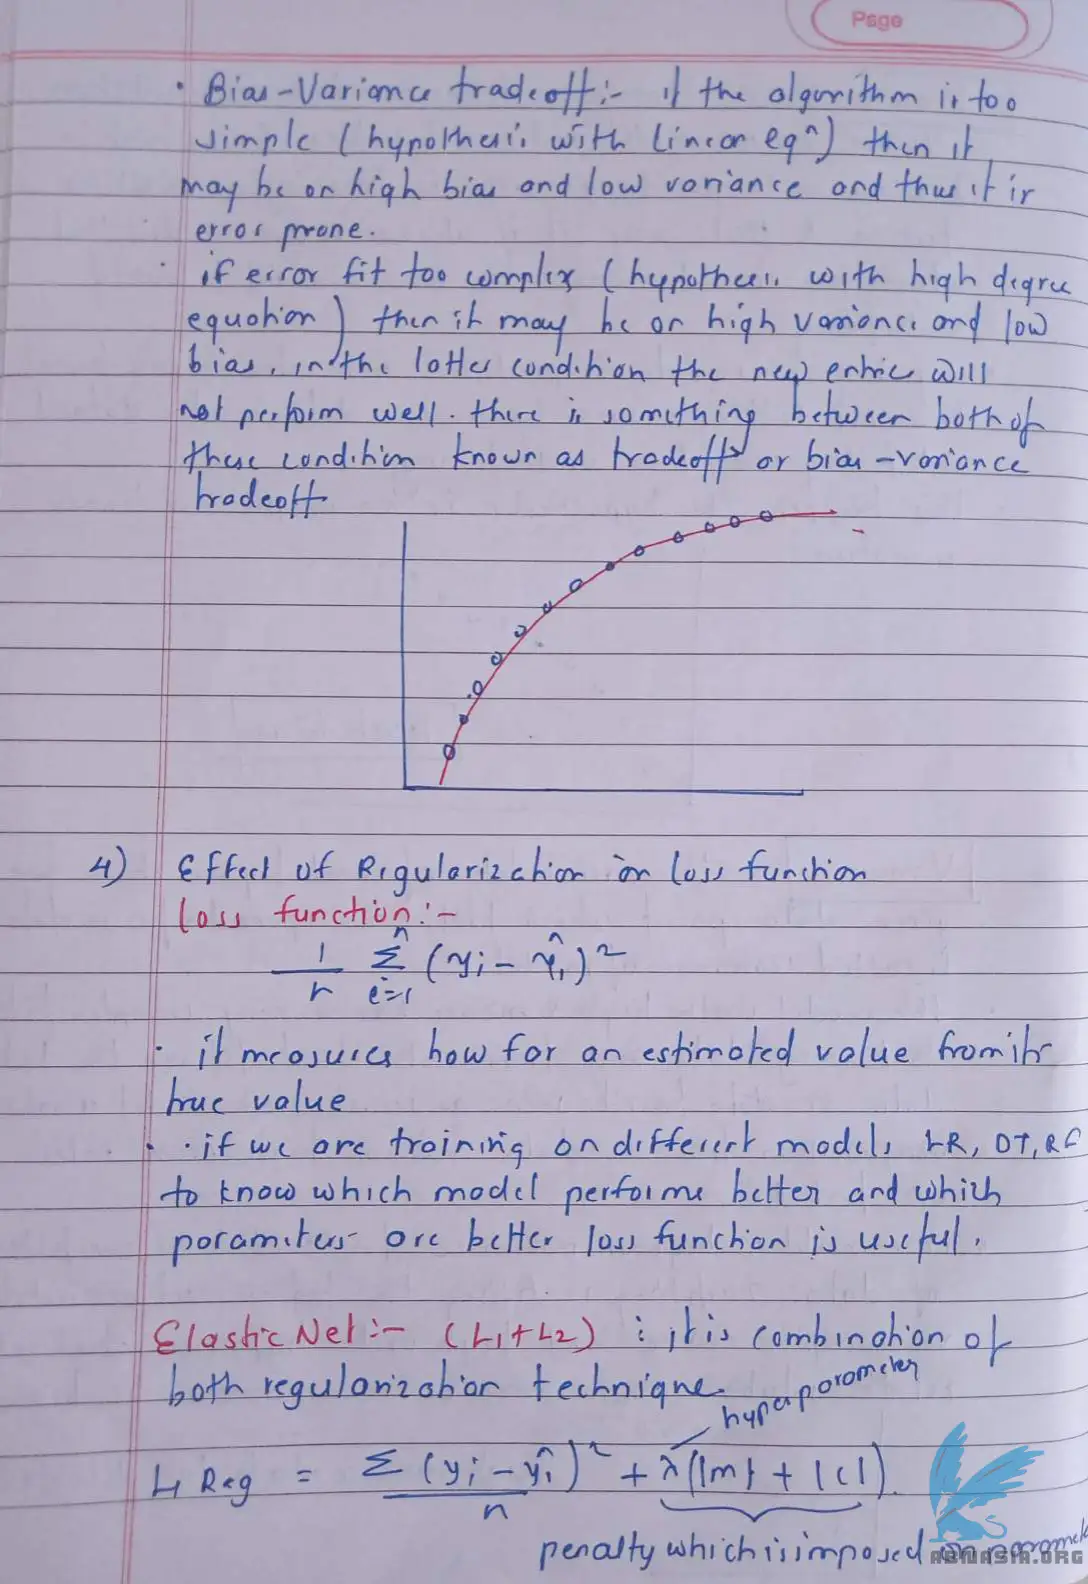 Page
· Bias-Variance tradeoff:- if the algorithm is too
simple (hypothesis with linear eqⁿ) then it
may be on high bias and low variance and thus it is
error prone.
· if error fit too complex (hypothesis with high degree
equation) then it may be on high variance and low
bias, in the latter condition the new entries will
not perform well. there is something between both of
these condition known as tradeoff or bias-variance
tradeoff
4) Effect of Regularization on loss function
loss function:-
1/n Σⁿᵢ₌₁ (yᵢ - ŷᵢ)²
· it measures how far an estimated value from its
true value
· if we are training on different models LR, DT, RF
to know which model performs better and which
parameters are better loss function is useful.
Elastic Net:- (L1+L2) : it is combination of
both regularization technique.
hyperparameter
L1 Reg = Σ(yᵢ - ŷᵢ)²/n + λ(|m| + |c|).
penalty which is imposed on
ABNASIA.ORG